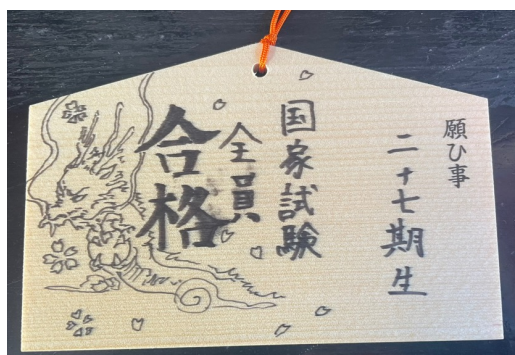 願ひ事
二十七期生
国家試験
全員
合格